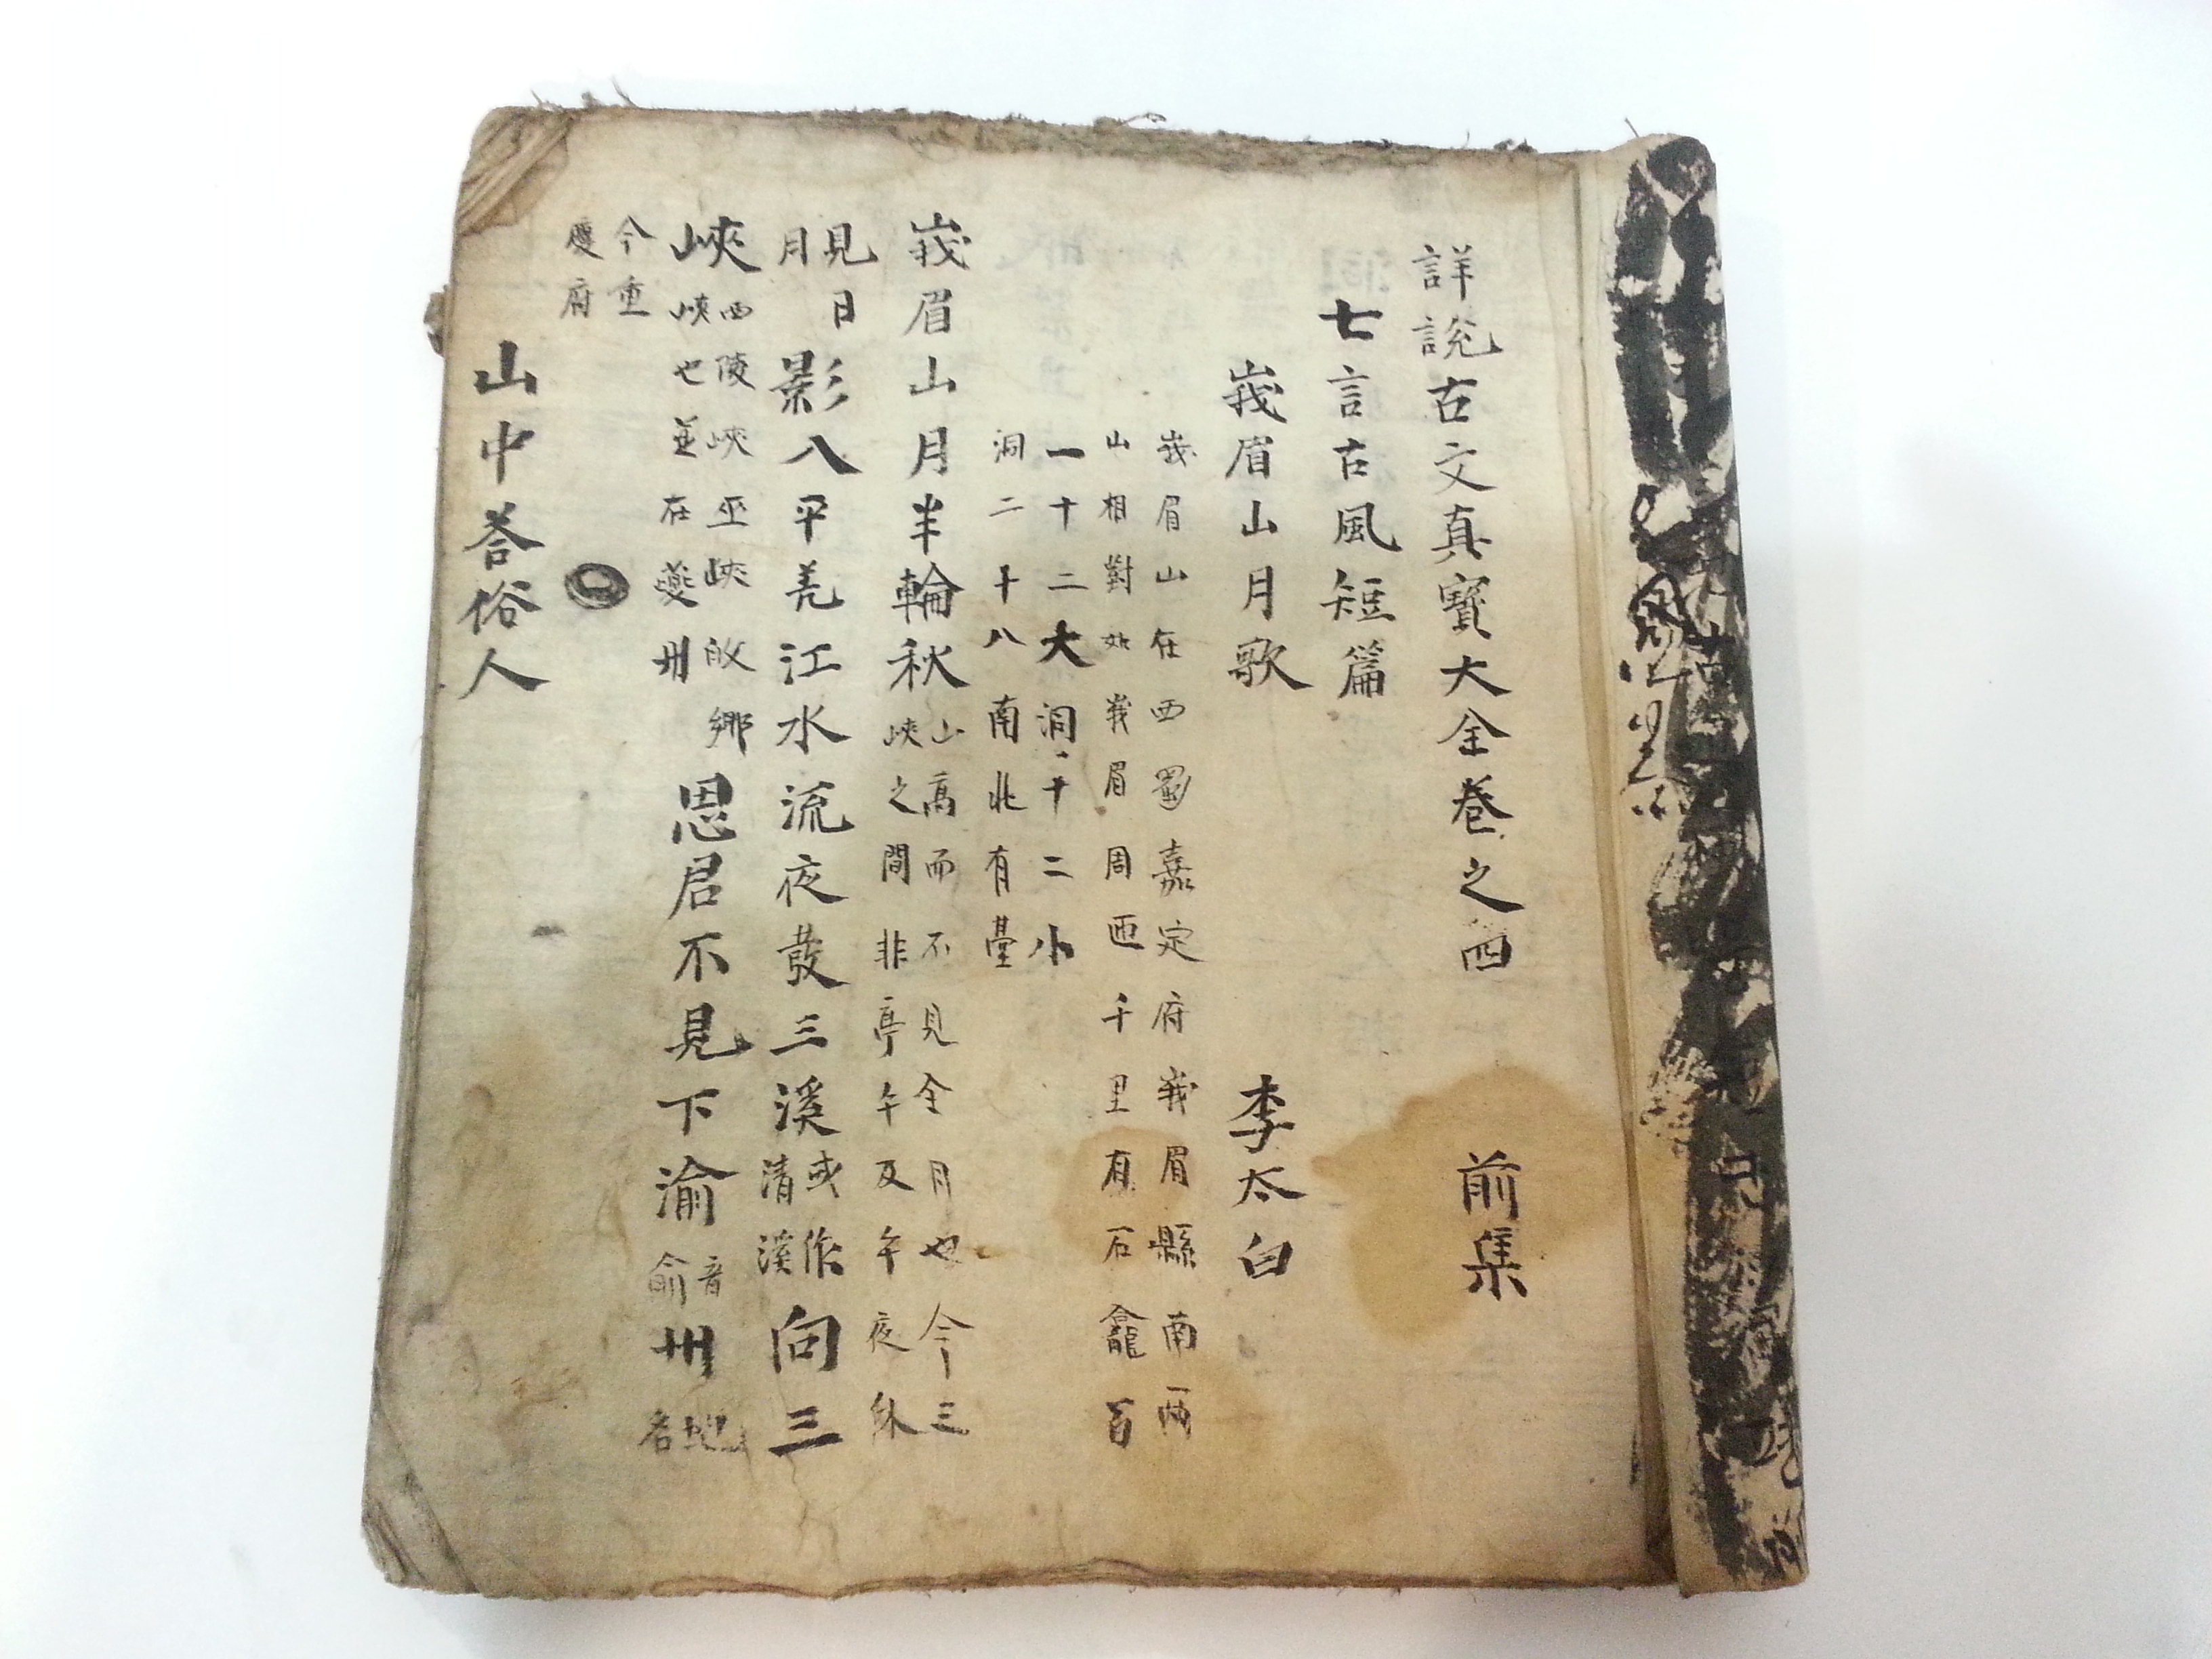 詳說古文真寳大全卷之四 前集
七言古風短篇
峩眉山月歌 李太白
峩眉山在西蜀嘉定府峩眉縣南兩
山相對如峩眉周匝千里有石龕百
一十二大洞十二小
洞二十八南北有臺
峩眉山月半輪秋
山高而不見全月也今三
峽之間非亭午及午夜休
見日
月
影入平羌江水流夜發三溪
或作
清溪
向三
峽
西陵峽巫峽故鄉
峽也並在夔州
思君不見下渝
音
俞
州
地
名
今重
慶府
山中荅俗人